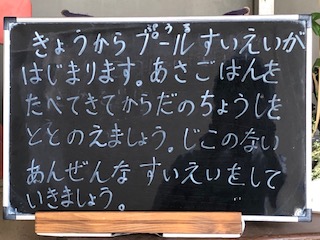 きょうから プール すいえいが
はじまります。あさごはんを
たべてきてからだのちょうじを
ととのえましょう。じこのない
あんぜんな すいえいをして
いきましょう。